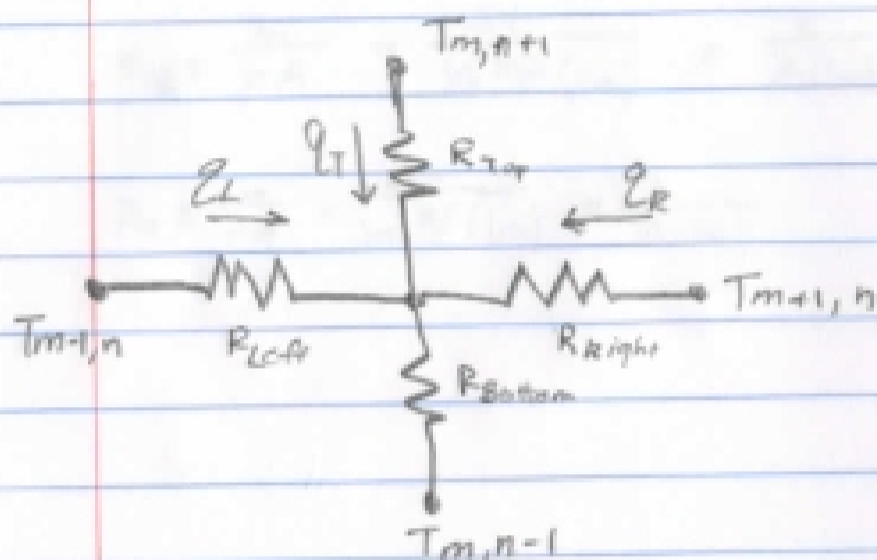 Tm,n+1
qT
RTop
qL
qR
Tm-1,n
RLeft
RRight
Tm+1, n
RBottom
Tm,n-1